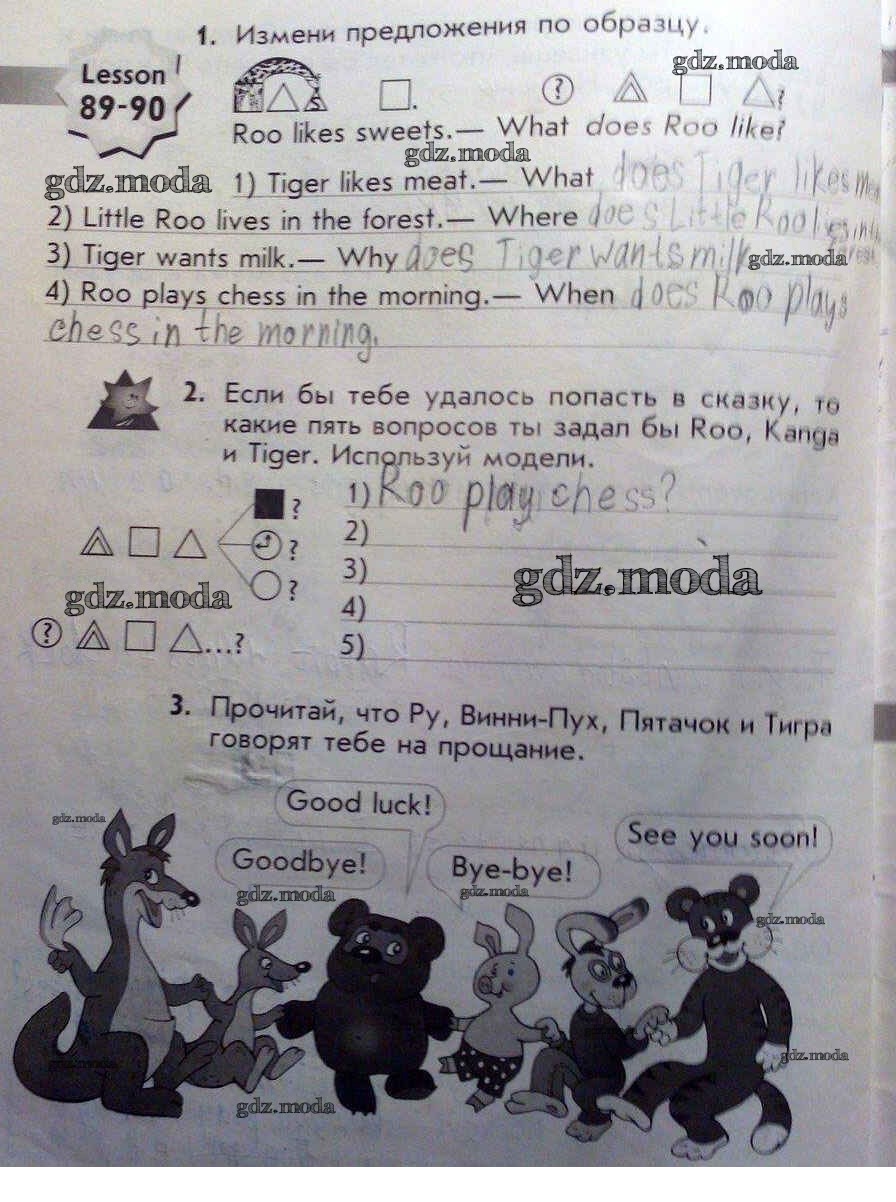 1. Измени предложения по образцу.
Lesson
89-90
gdz.moda
? ?
Roo likes sweets.— What does Roo like?
gdz.moda
gdz.moda
1) Tiger likes meat.— What does Tiger likes
2) Little Roo lives in the forest.— Where does Little Roo
3) Tiger wants milk.— Why does Tiger wants milk
gdz.moda
4) Roo plays chess in the morning.— When does Roo plays
chess in the morning.
2. Если бы тебе удалось попасть в сказку, то
какие пять вопросов ты задал бы Roo, Kanga
и Tiger. Используй модели.
? 1) Roo play chess?
? 2)
? 3)
gdz.moda
gdz.moda
4)
? ...? 5)
3. Прочитай, что Ру, Винни-Пух, Пятачок и Тигра
говорят тебе на прощание.
Good luck!
gdz.moda
See you soon!
Goodbye!
Bye-bye!
gdz.moda
gdz.moda
gdz.moda
gdz.moda
gdz.moda
gdz.moda